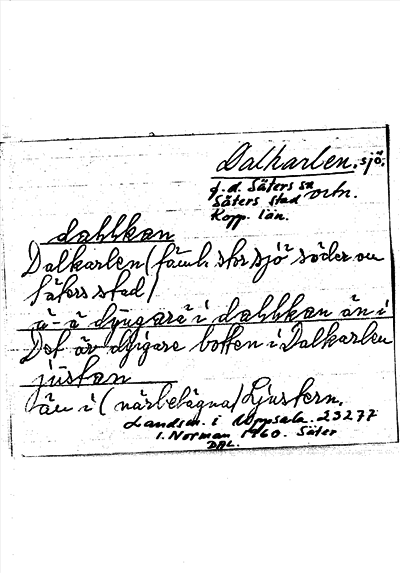 Dalkarlen, sjö.
f. d. Säters sn
Säters stad och n.
Kopp. län.
dahhkan
Dalkarlen (jämh. stor sjö söder om
Säters stad)
ä ä dyngare i dahhkan än i
Det är dyigare botten i Dalkarlen
justan
än i (närbelägna) Ljustern.
Landsm. i Uppsala. 23277
I. Norman 1960. Säter
DAL.